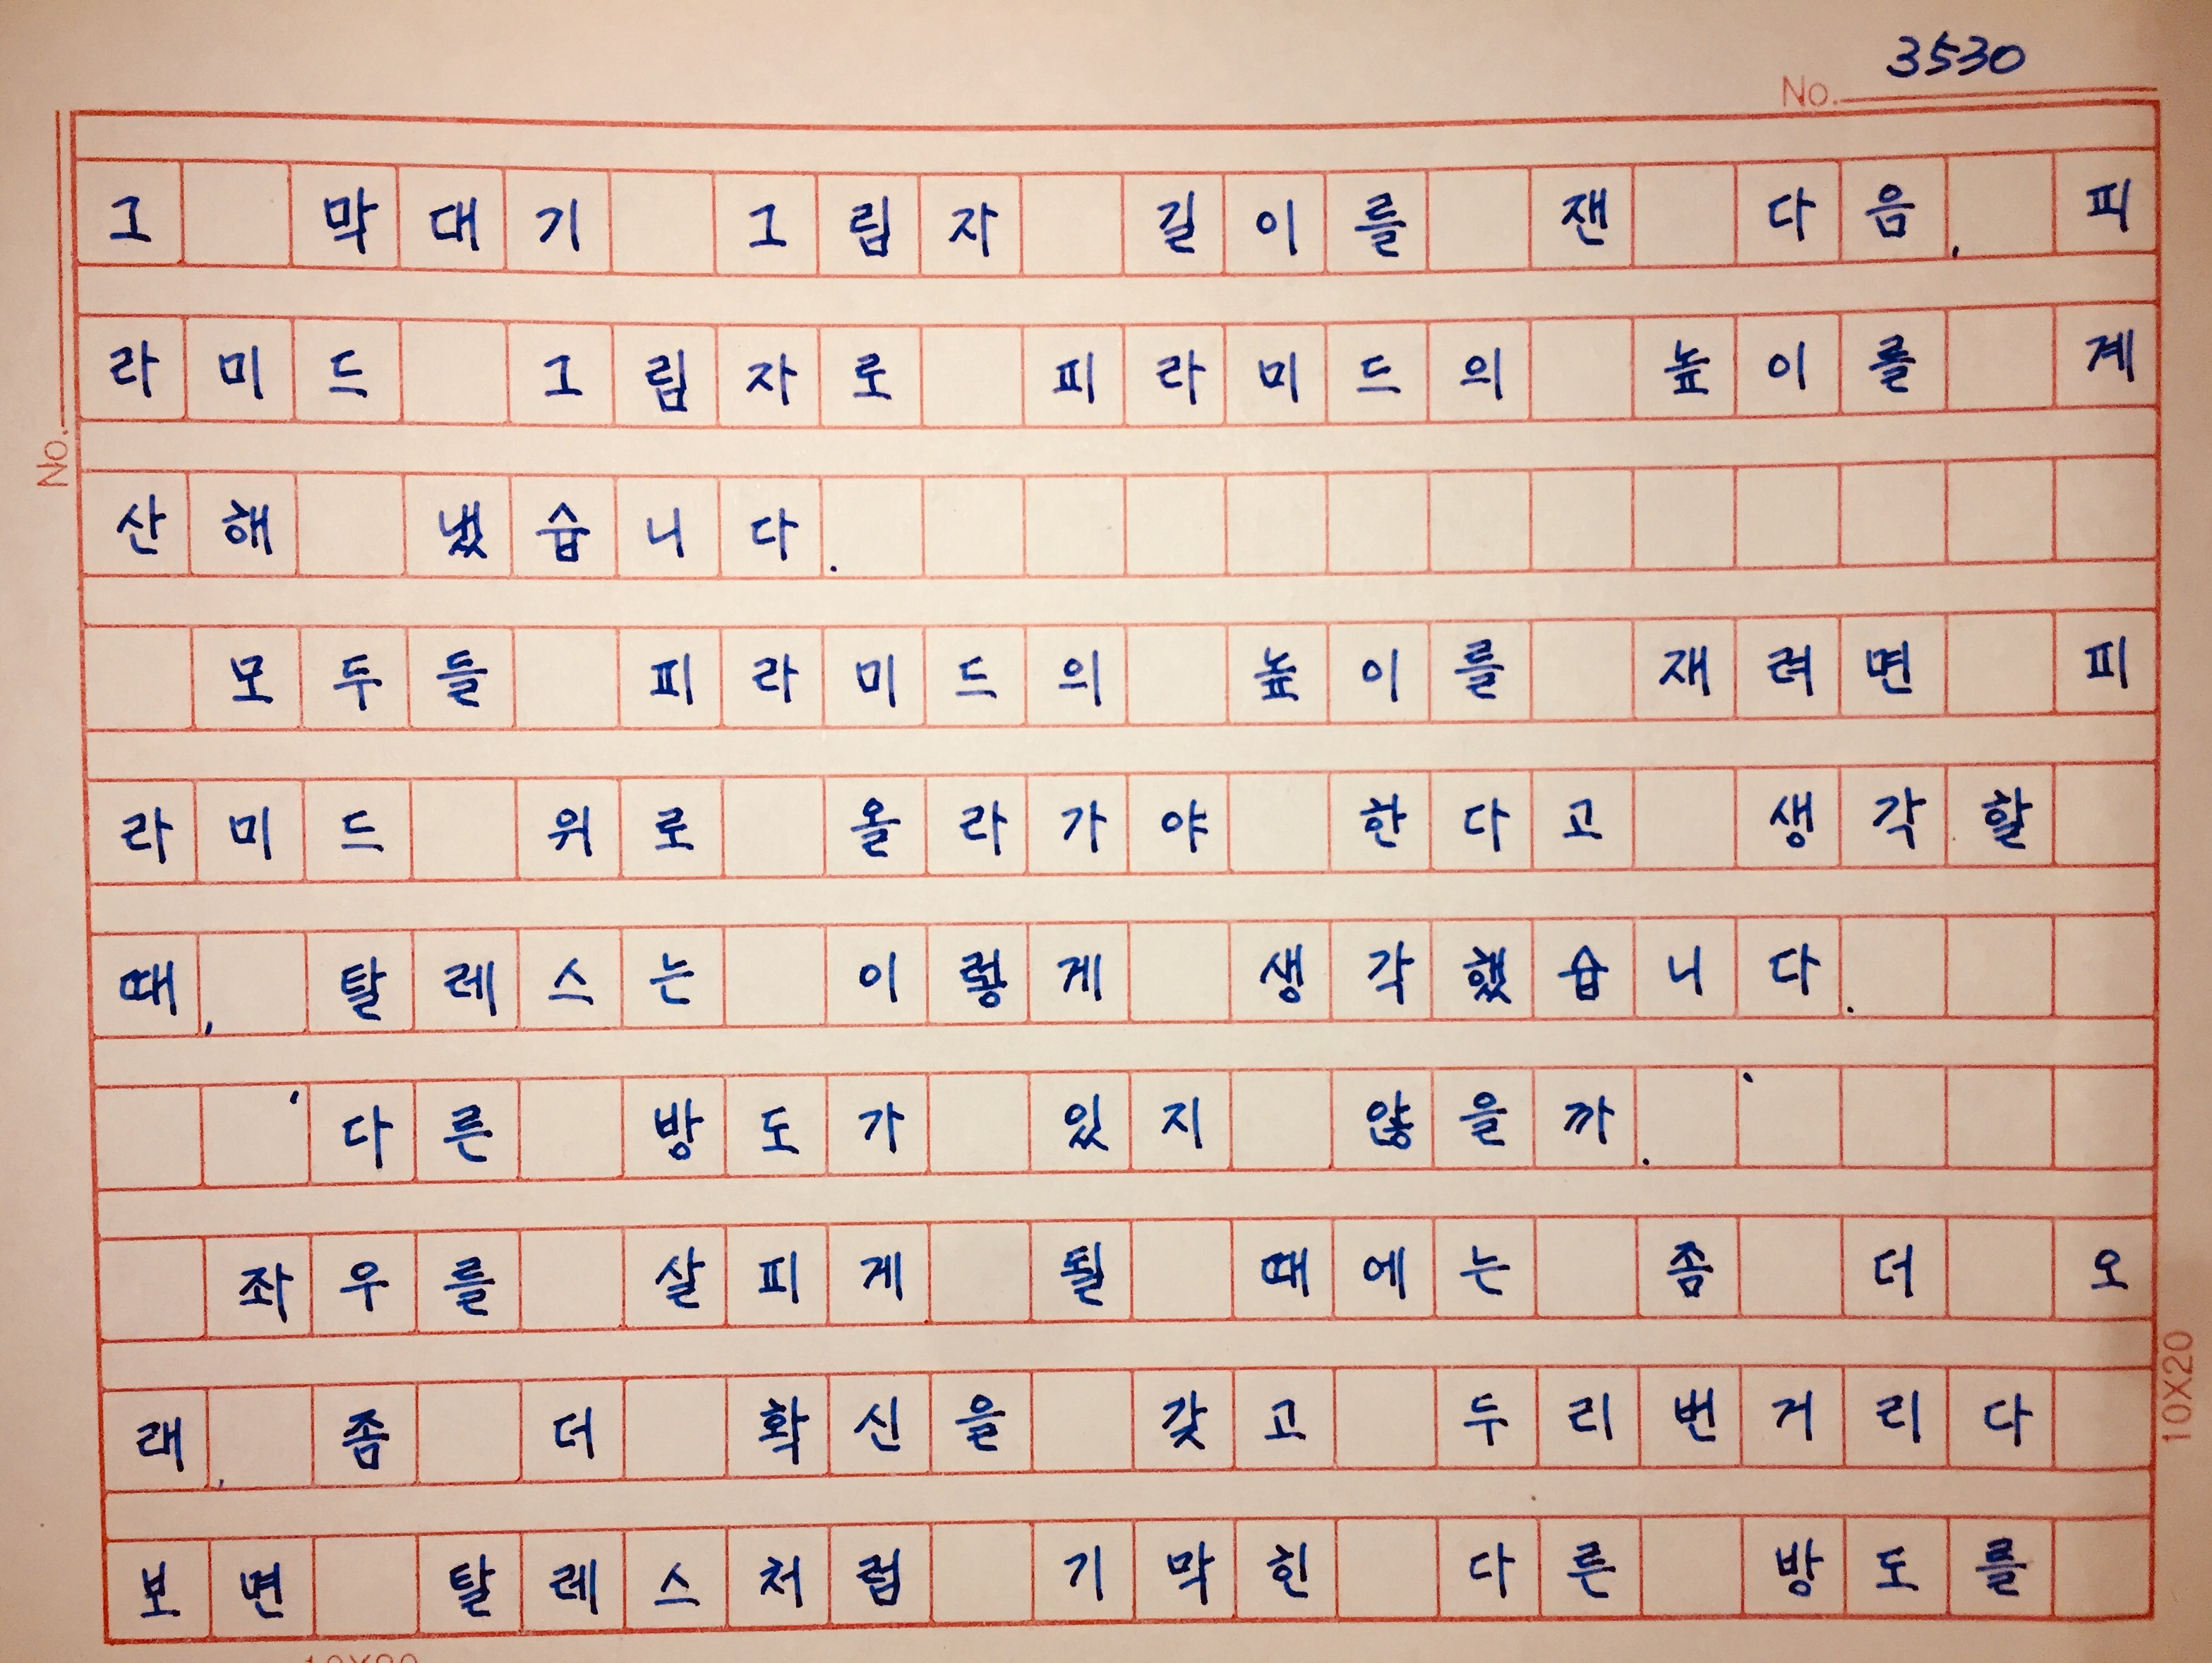 3530
No.
그 막대기 그림자 길이를 잰 다음, 피
라미드 그림자로 피라미드의 높이를 계
No.
산해 냈습니다.
모두들 피라미드의 높이를 재려면 피
라미드 위로 올라가야 한다고 생각할
때, 탈레스는 이렇게 생각했습니다.
'다른 방도가 있지 않을까.'
좌우를 살피게 될 때에는 좀 더 오
10X20
래, 좀 더 확신을 갖고 두리번거리다
보면 탈레스처럼 기막힌 다른 방도를
10X20